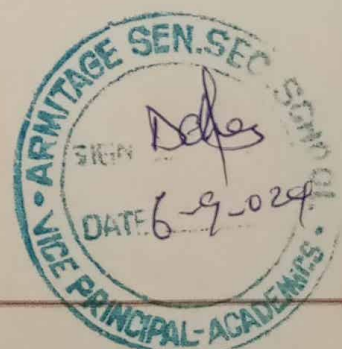 • ARMITAGE SEN. SEC SCHOOL •
SIGN
DATE 6-9-024
VICE PRINCIPAL-ACADEMICS